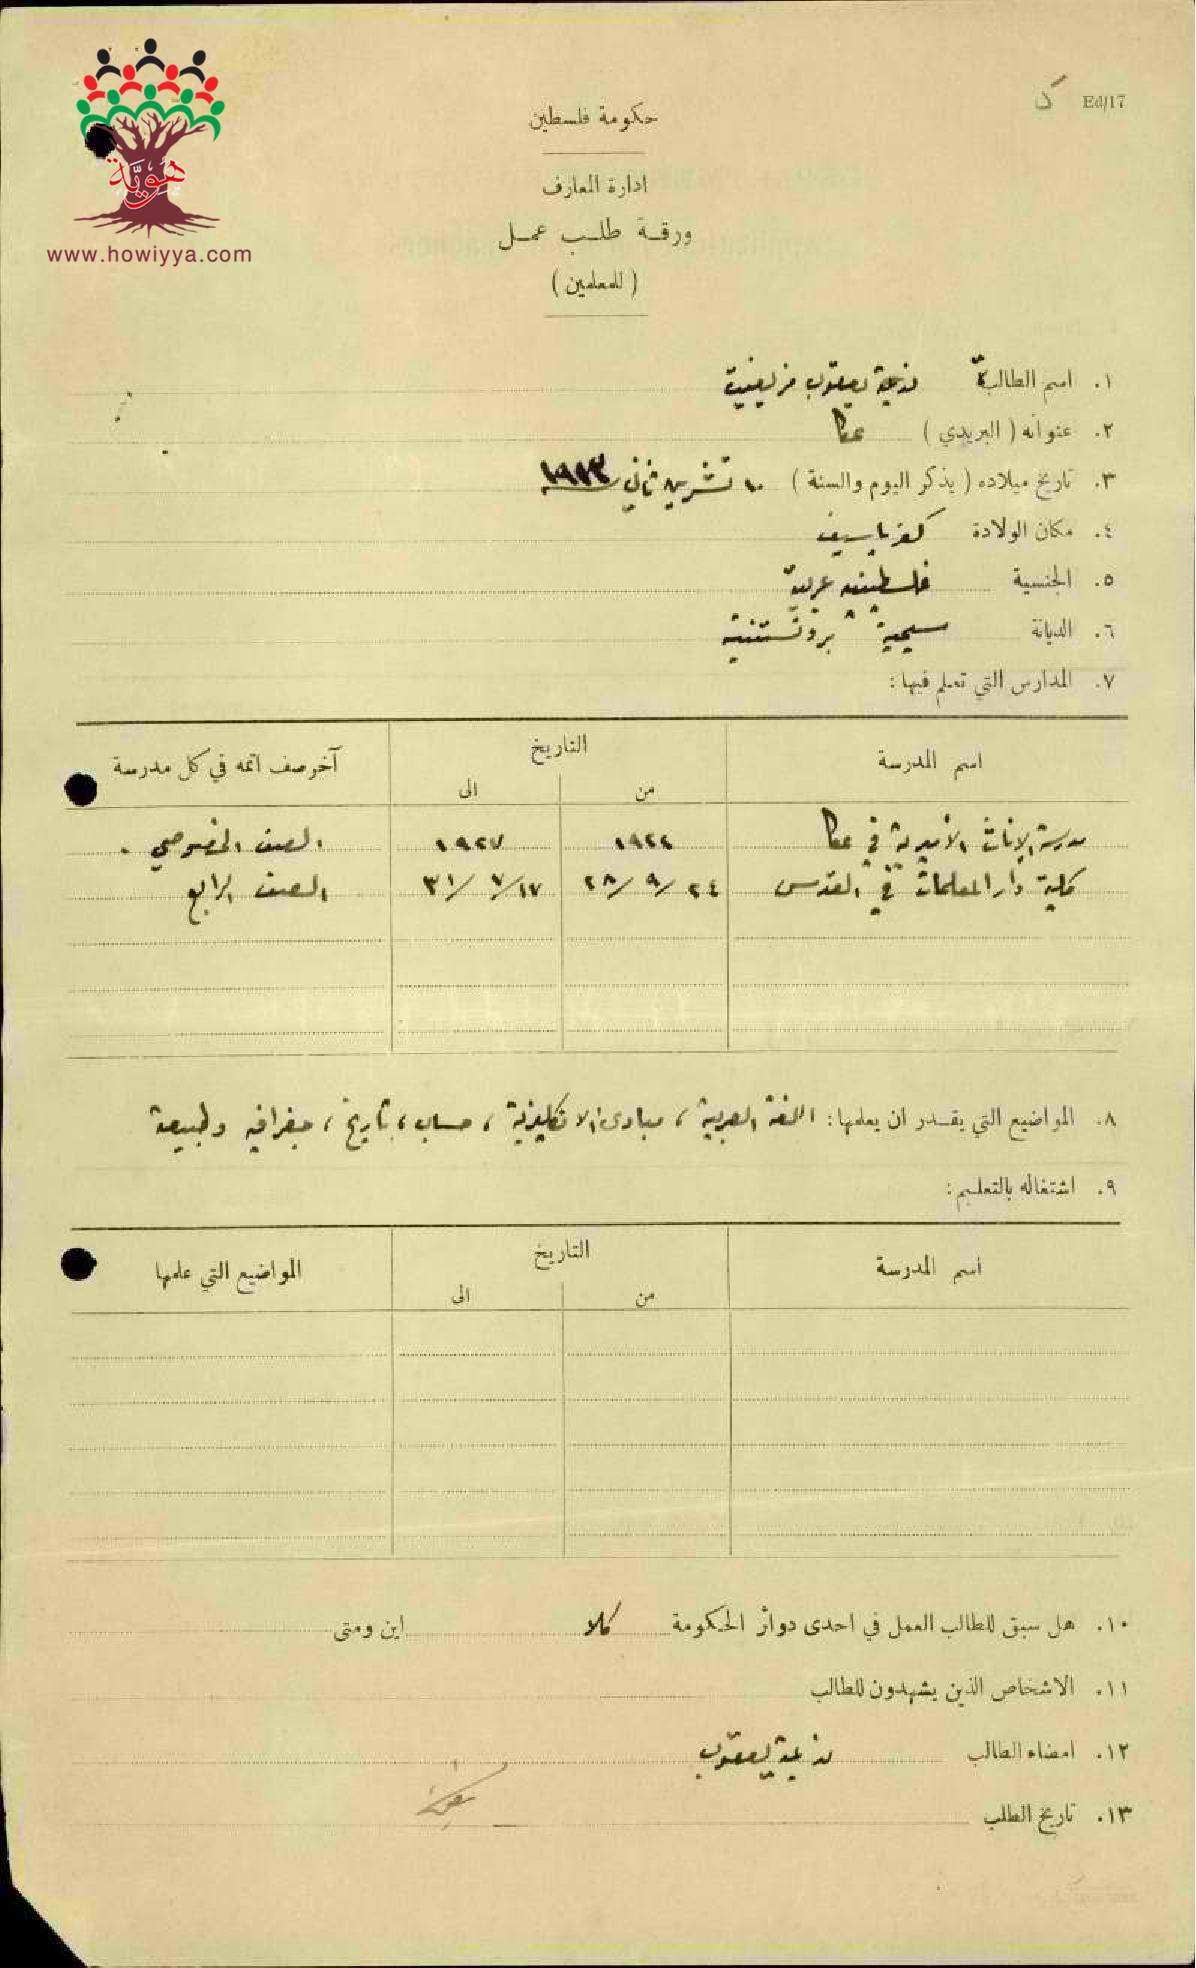 Ed/17
هوية
www.howiyya.com
حكومة فلسطين
ادارة المعارف
ورقة طلب عمل
( للمعلمين )
١. اسم الطالبة يعقوب
٢. عنوانه ( البريدي ) عكا
٣. تاريخ ميلاده ( يذكر اليوم والسنة ) ١٠ تشرين ثاني سنة ١٩١٣
٤. مكان الولادة كفر ياسيف
٥. الجنسية فلسطينية عربية
٦. الديانة مسيحية بروتستنتية
٧. المدارس التي تعلم فيها :
اسم المدرسة التاريخ من الى آخر صف اتمه في كل مدرسة
مدرسة الاناث الأميرية في عكا ١٩٢٢ ١٩٢٧ الصف الخصوصي .
كلية دار المعلمات في القدس ٢٤/٩/٢٨ ١٧/٧/٣١ الصف الرابع
٨. المواضيع التي يقدر ان يعلمها : اللغة العربية ، مبادئ الانكليزية ، حساب ، تاريخ ، جغرافيه وطبيعة
٩. اشتغاله بالتعليم :
اسم المدرسة التاريخ من الى المواضيع التي علمها
١٠. هل سبق للطالب العمل في احدى دوائر الحكومة كلا اين ومتى
١١. الاشخاص الذين يشهدون للطالب
١٢. امضاء الطالب يعقوب
١٣. تاريخ الطلب